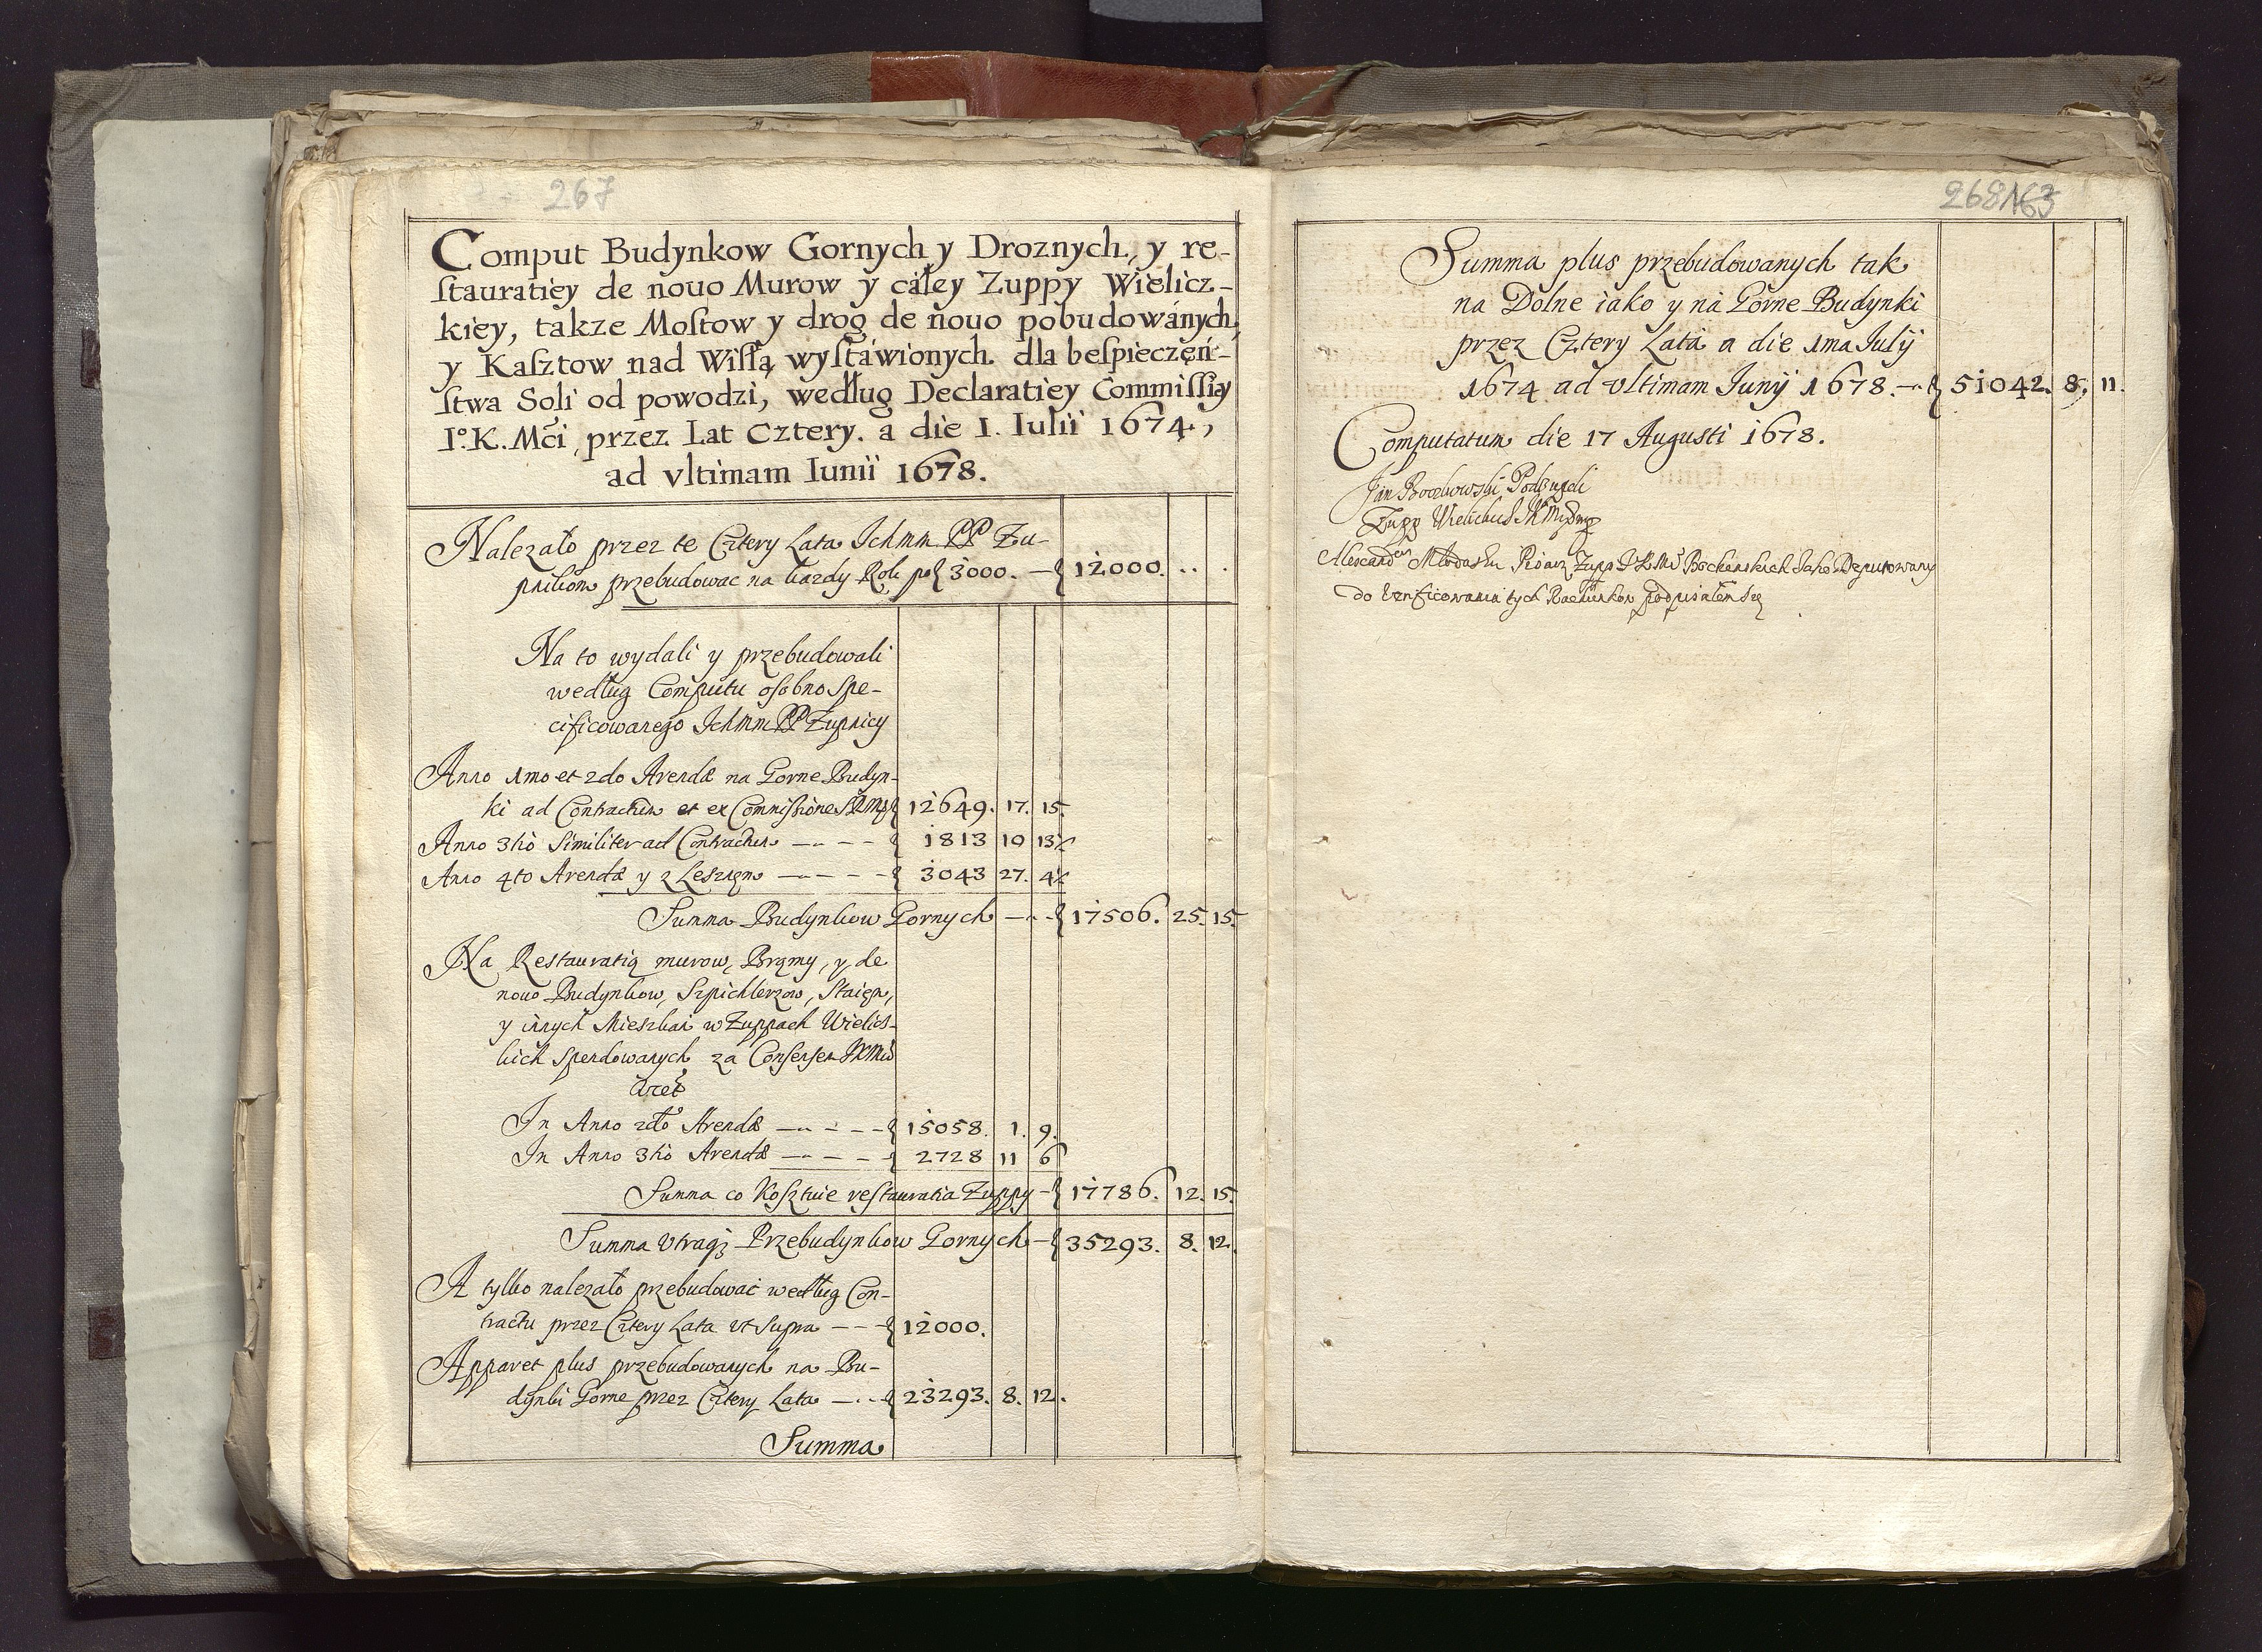 267
Comput Budynkow Gornych y Droznych, y re-
stauratiey de nouo Murow y całey Zuppy Wielicz-
kiey, takze Mostow y drog de nouo pobudowánych,
y Kasztow nad Wisłą wystáwionych. dla bespieczeń-
stwa Soli od powodzi, według Declaratiey Commissiiy
I°. K. Mći przez Lat Cztery. a die 1. Iulii 1674,
ad vltimam Iunii 1678.
Nalezało przez te Cztery Lata Ichmm PP Zu-
pnikom przebudowac na kazdy Rok po { 3000. — { 12000. .. .
Na to wydali y przebudowali
według Computu osobno spe-
cificowanego Ichmm PP Zupnicy
Anno 1mo et 2do Arendæ na Gorne Budyn-
ki ad Contractum et ex Commissione { 12649. 17. 15.
Anno 3tio Similiter ad Contractum { 1813 10 13½
Anno 4to Arendæ y z Lesznęm { 3043 27. 4½
Summa Budynkow Gornych { 17506. 25. 15.
Na Restauratią murow, Bramy, y de
nouo Budynkow, Szpichlerzow, Staięn,
y innych Mieszkań w Zuppach Wielics-
kich spendowanych za Consensem
In Anno 2do Arendæ { 15058. 1. 9.
In Anno 3tio Arendæ { 2728 11 6
Summa co Kosztuie restauratia Zuppy { 17786. 12. 15.
Summa Vtraqz Przebudynkow Gornych { 35293. 8. 12.
A tylko nalezało przebudowac według Con-
tractu przez Cztery Lata vt Supra { 12000.
Apparet plus przebudowanych na Bu-
dynki Gorne przez Cztery Lata { 23293. 8. 12.
Summa
268 163
Summa plus przebudowanych tak
na Dolne iako y ná Gorne Budynki
przez Cztery Latá a die 1ma Iulÿ
1674 ad vltimam Iunÿ 1678. { 51042. 8. 11.
Computatum die 17 Augusti 1678.
Jan
Zupp
Zupp Bochenskich Jako Deputowany
do Veryficowania tych Rachunkow podpisałem Się